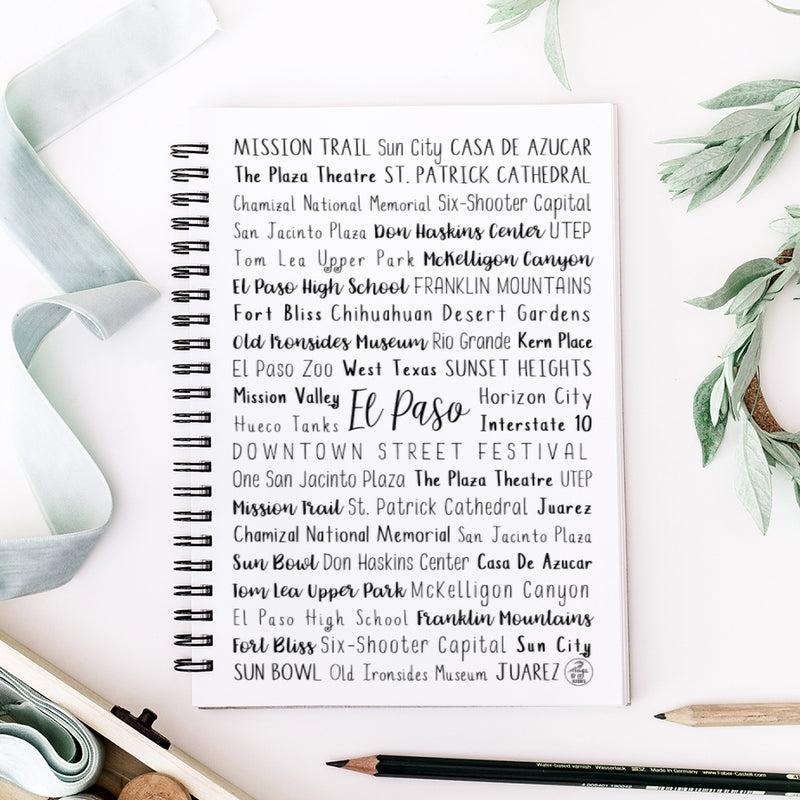 MISSION TRAIL Sun City CASA DE AZUCAR
The Plaza Theatre ST. PATRICK CATHEDRAL
Chamizal National Memorial Six-Shooter Capital
San Jacinto Plaza Don Haskins Center UTEP
Tom Lea Upper Park McKelligon Canyon
El Paso High School FRANKLIN MOUNTAINS
Fort Bliss Chihuahuan Desert Gardens
Old Ironsides Museum Rio Grande Kern Place
El Paso Zoo West Texas SUNSET HEIGHTS
Mission Valley El Paso Horizon City
Hueco Tanks Interstate 10
DOWNTOWN STREET FESTIVAL
One San Jacinto Plaza The Plaza Theatre UTEP
Mission Trail St. Patrick Cathedral Juarez
Chamizal National Memorial San Jacinto Plaza
Sun Bowl Don Haskins Center Casa De Azucar
Tom Lea Upper Park McKelligon Canyon
El Paso High School Franklin Mountains
Fort Bliss Six-Shooter Capital Sun City
SUN BOWL Old Ironsides Museum JUAREZ
Water-based varnish Wasserlack Made in Germany www.Faber-Castell.com